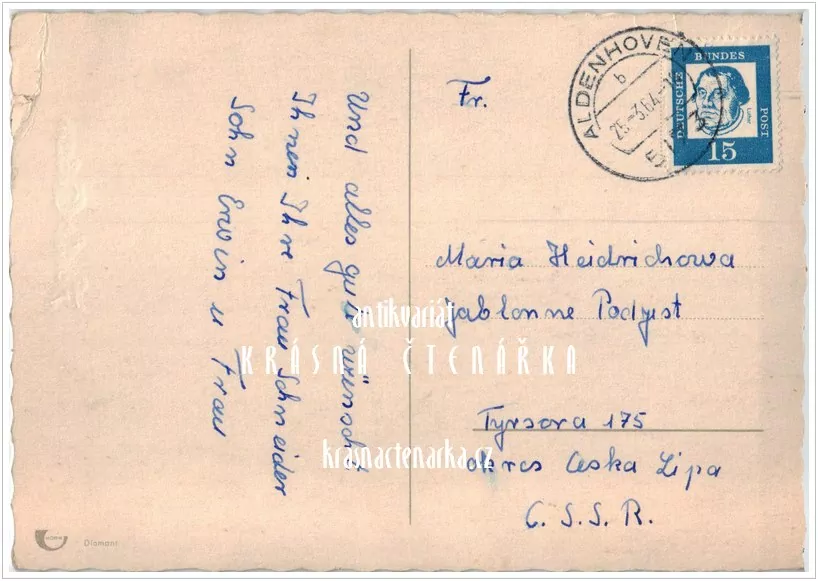 Und alles gute wünscht
Ihnen Ihre Frau Schneider
Sohn Erwin u Frau
Fr.
Maria Heidrichowa
Jablonne Podjest
Tyrsova 175
okres Ceska Lipa
C.S.S.R.
ALDENHOVEN
b
25.-3.64.-
DEUTSCHE BUNDES POST
Luther
15
antikvariát
KRÁSNÁ ČTENÁŘKA
krasnactenarka.cz
Diamant